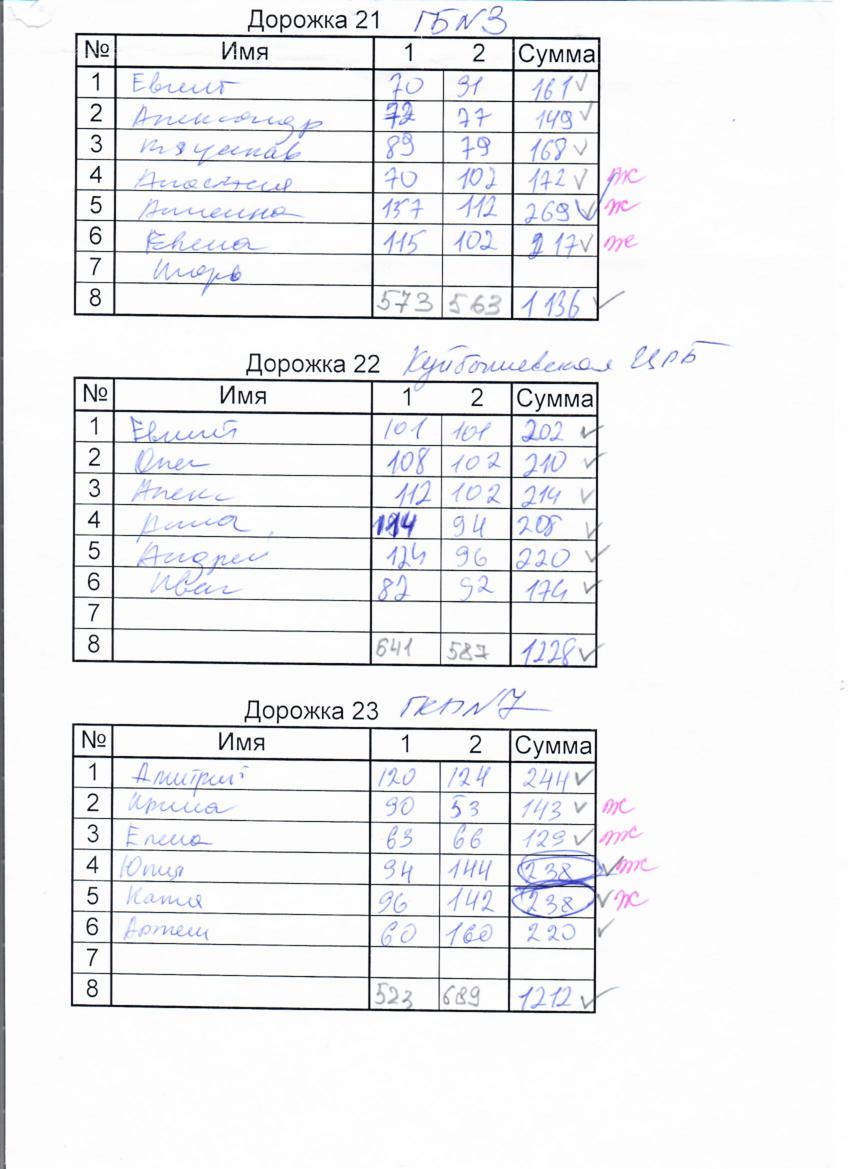 Дорожка 21 ГБ№3
№ Имя 1 2 Сумма
1 Евгений 70 91 161 ✓
2 Александр 72 77 149 ✓
3 89 79 168 ✓
4 Анастасия 70 102 172 ✓ ж
5 157 112 269 ✓ ж
6 Елена 115 102 217 ✓ ж
7 Игорь
8 573 563 1136 ✓
Дорожка 22 Куйбышевская ЦРБ
№ Имя 1 2 Сумма
1 Евгений 101 101 202 ✓
2 Олег 108 102 210 ✓
3 Алекс 112 102 214 ✓
4 114 94 208 ✓
5 Андрей 124 96 220 ✓
6 Иван 82 92 174 ✓
7
8 641 587 1228 ✓
Дорожка 23 ГКП№7
№ Имя 1 2 Сумма
1 Дмитрий 120 124 244 ✓
2 Ирина 90 53 143 ✓ ж
3 Елена 63 66 129 ✓ ж
4 Юлия 94 144 238 ✓ ж
5 Катя 96 142 238 ✓ ж
6 Артем 60 160 220 ✓
7
8 523 689 1212 ✓